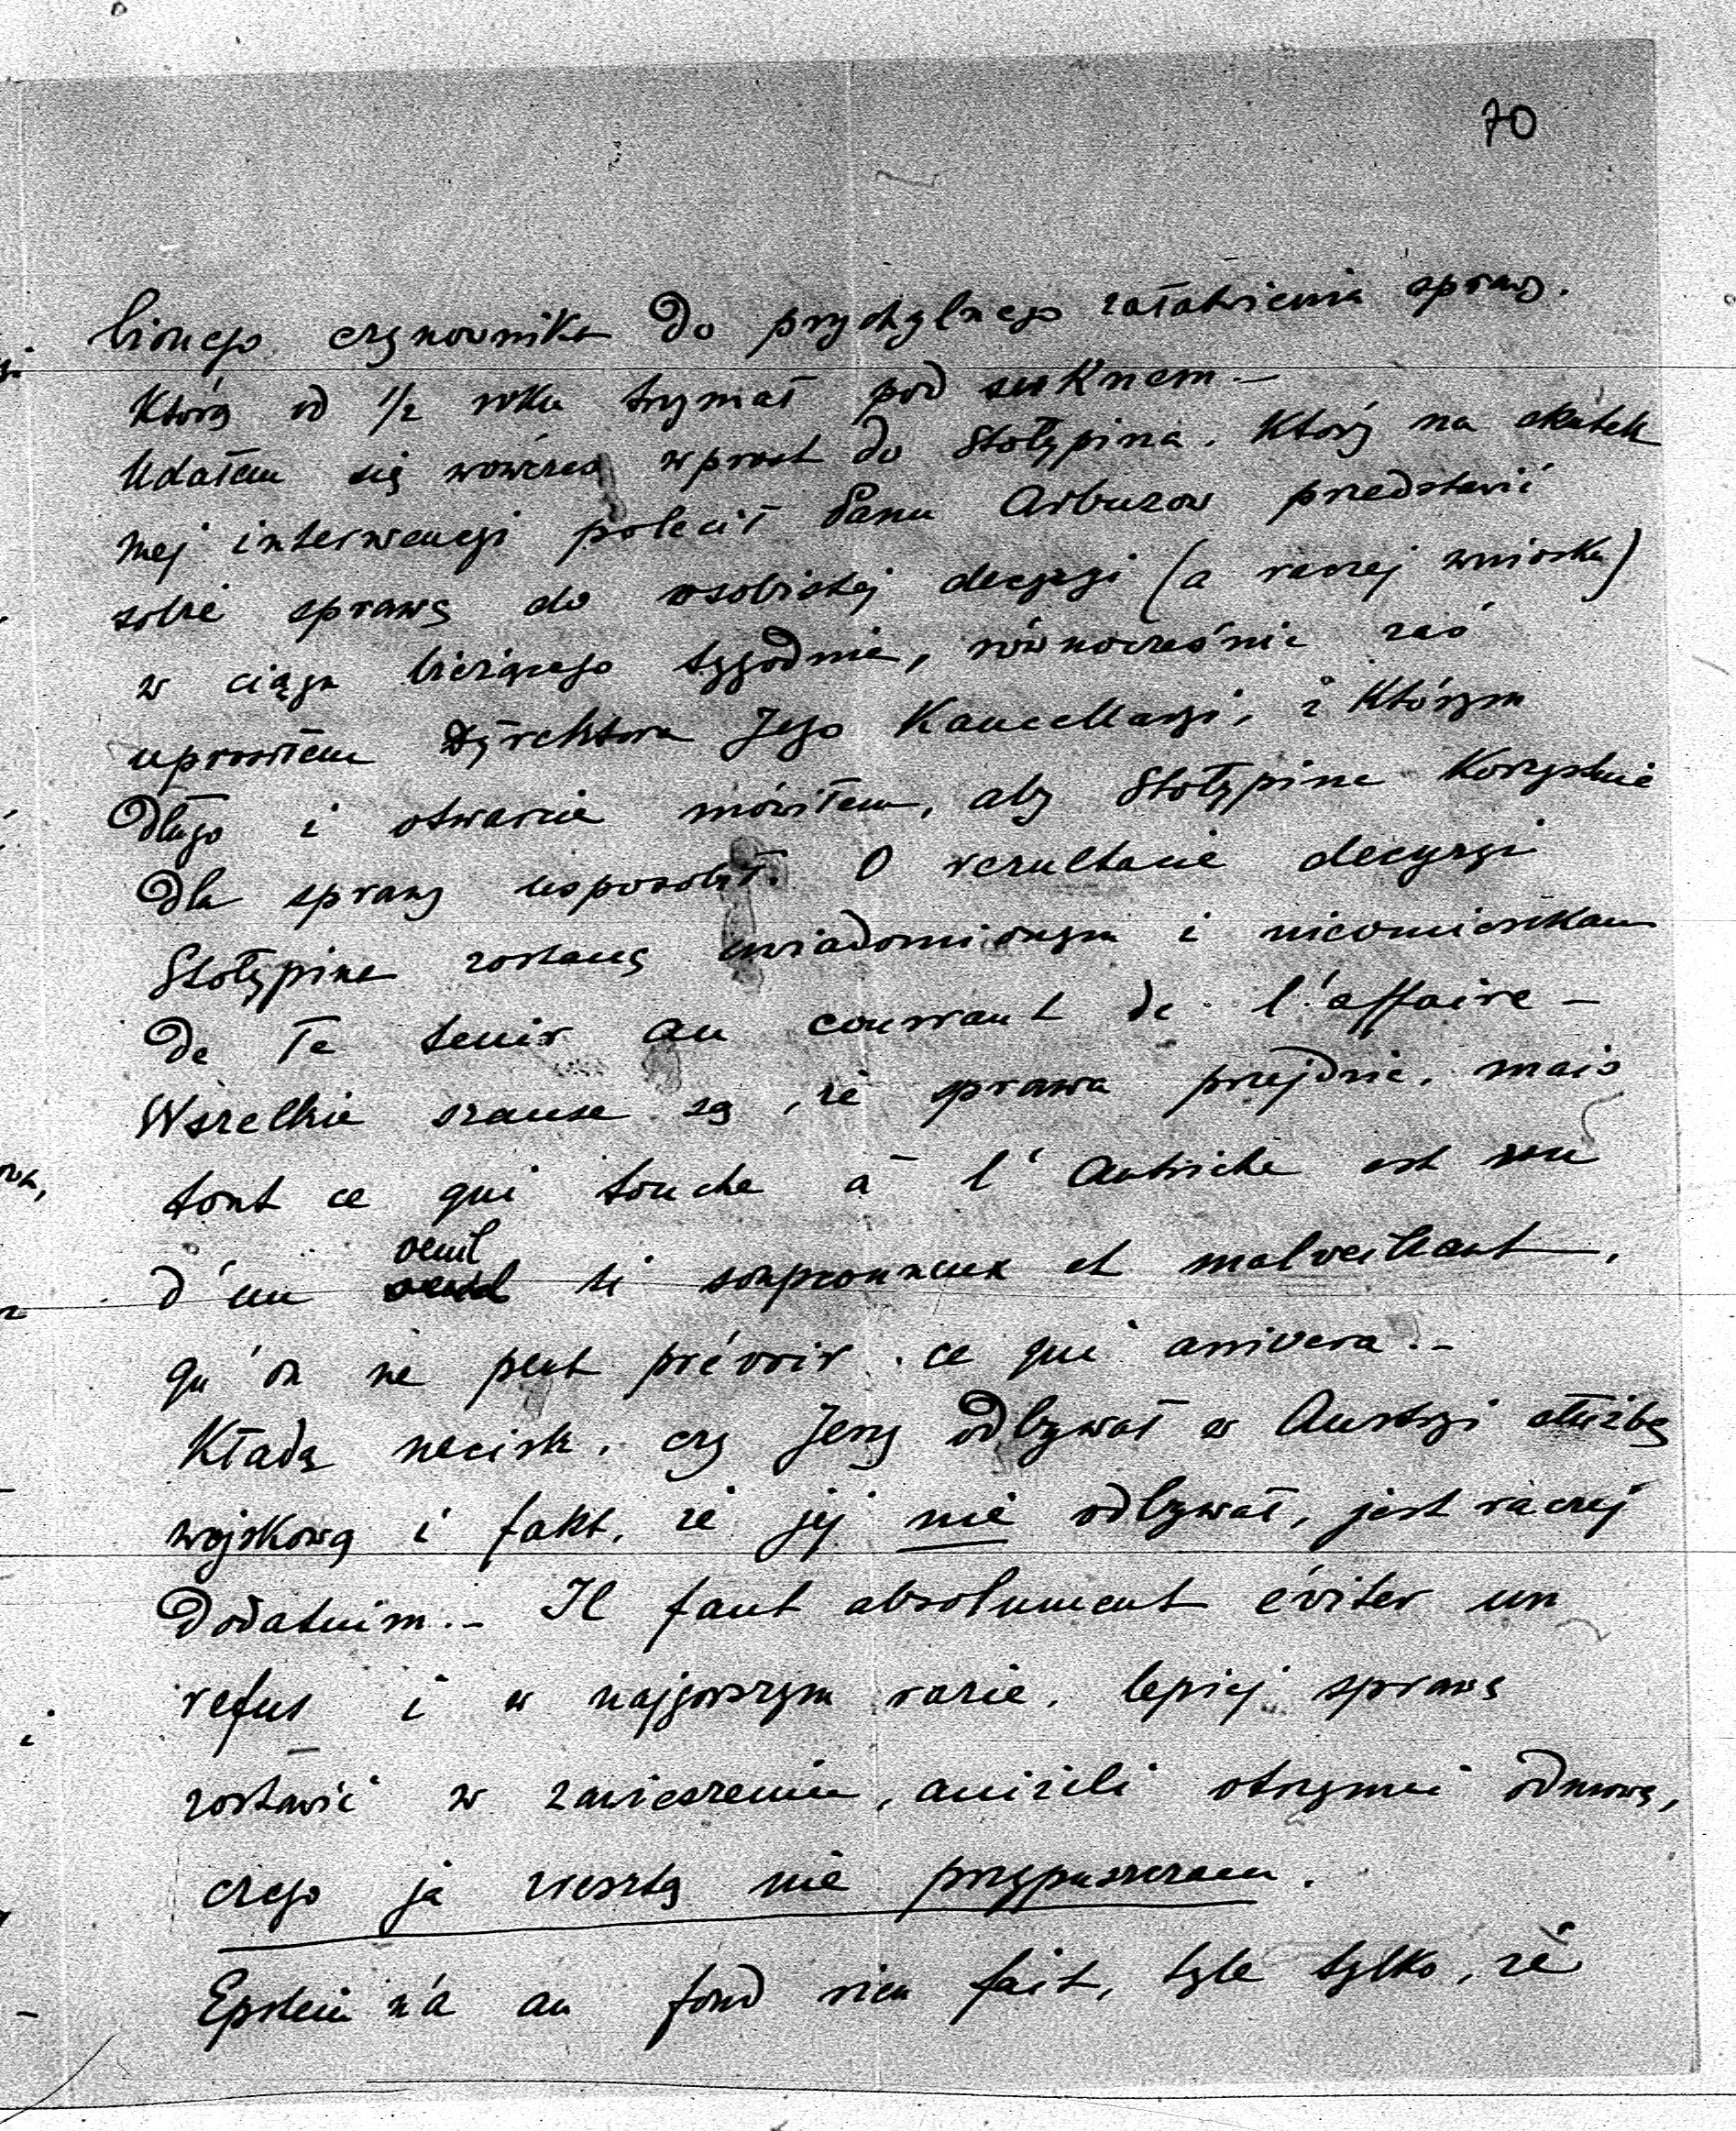 70
bionego czynownika do przychylnego załatwienia sprawy.
którą od 1/2 roku trzymał pod suknem.–
Udałem się wówczas wprost do Stołypina. który na skutek
mej interwencyi polecił Panu Arbuzow przedstawić
sobie sprawę do osobistej decyzyi (a raczej wniosku)
w ciągu bieżącego tygodnia, równocześnie zaś
uprosiłem Dyrektora Jego Kancellaryi, z którym
długo i otwarcie mówiłem, aby Stołypina korzystnie
dla sprawy usposobił. O rezultacie decyzyi
Stołypina zostanę uwiadomionym i nieomieszkam
de Te tenir au courrant de l'affaire –
Wszelkie szanse są, że sprawa przejdzie. mais
tout ce qui touche à l'Autriche est vu
d'un oeuil si soupconneux et malveillant,
qu'on ne peut prévoir ce qui arrivera.–
Kładą nacisk. czy Jerzy odbywał w Austryi służbę
wojskową i fakt, że jej nie odbywał, jest raczej
dodatnim.– Il faut absolument éviter un
refus i w najgorszym razie. lepiej sprawę
zostawić w zawieszeniu, aniżeli otrzymać odmowę,
czego ja zresztą nie przypuszczam.
Epstein n'a au fond rien fait, tyle tylko, że